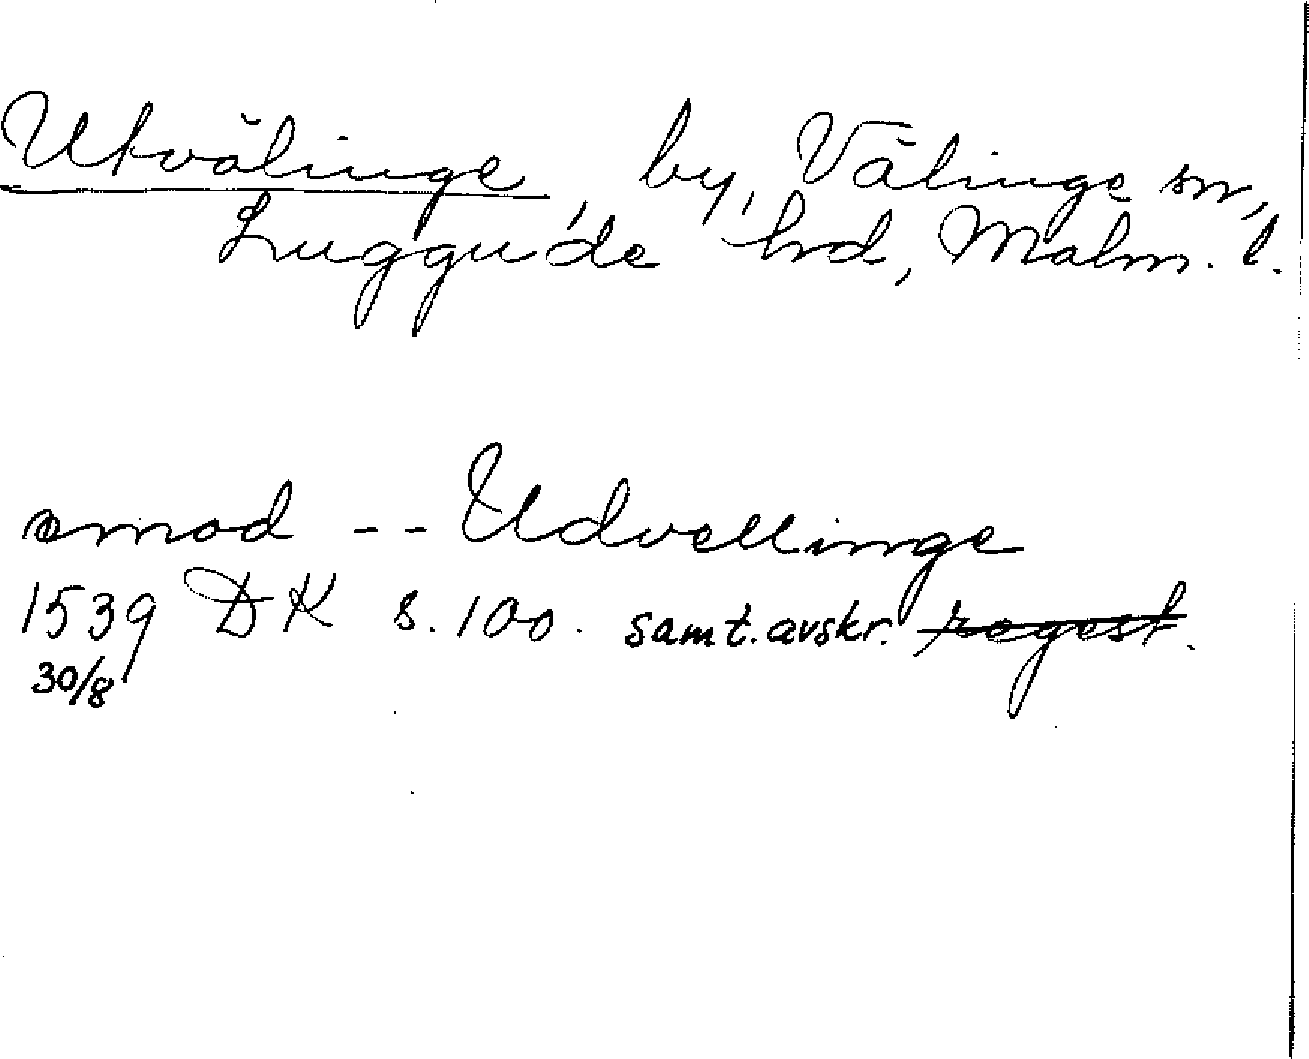 Utvälinge, by, Välinge sn,
Luggude hrd, Malm. l.
emod -- Udvellinge
1539 DK s. 100. samt. avskr. regest.
30/8